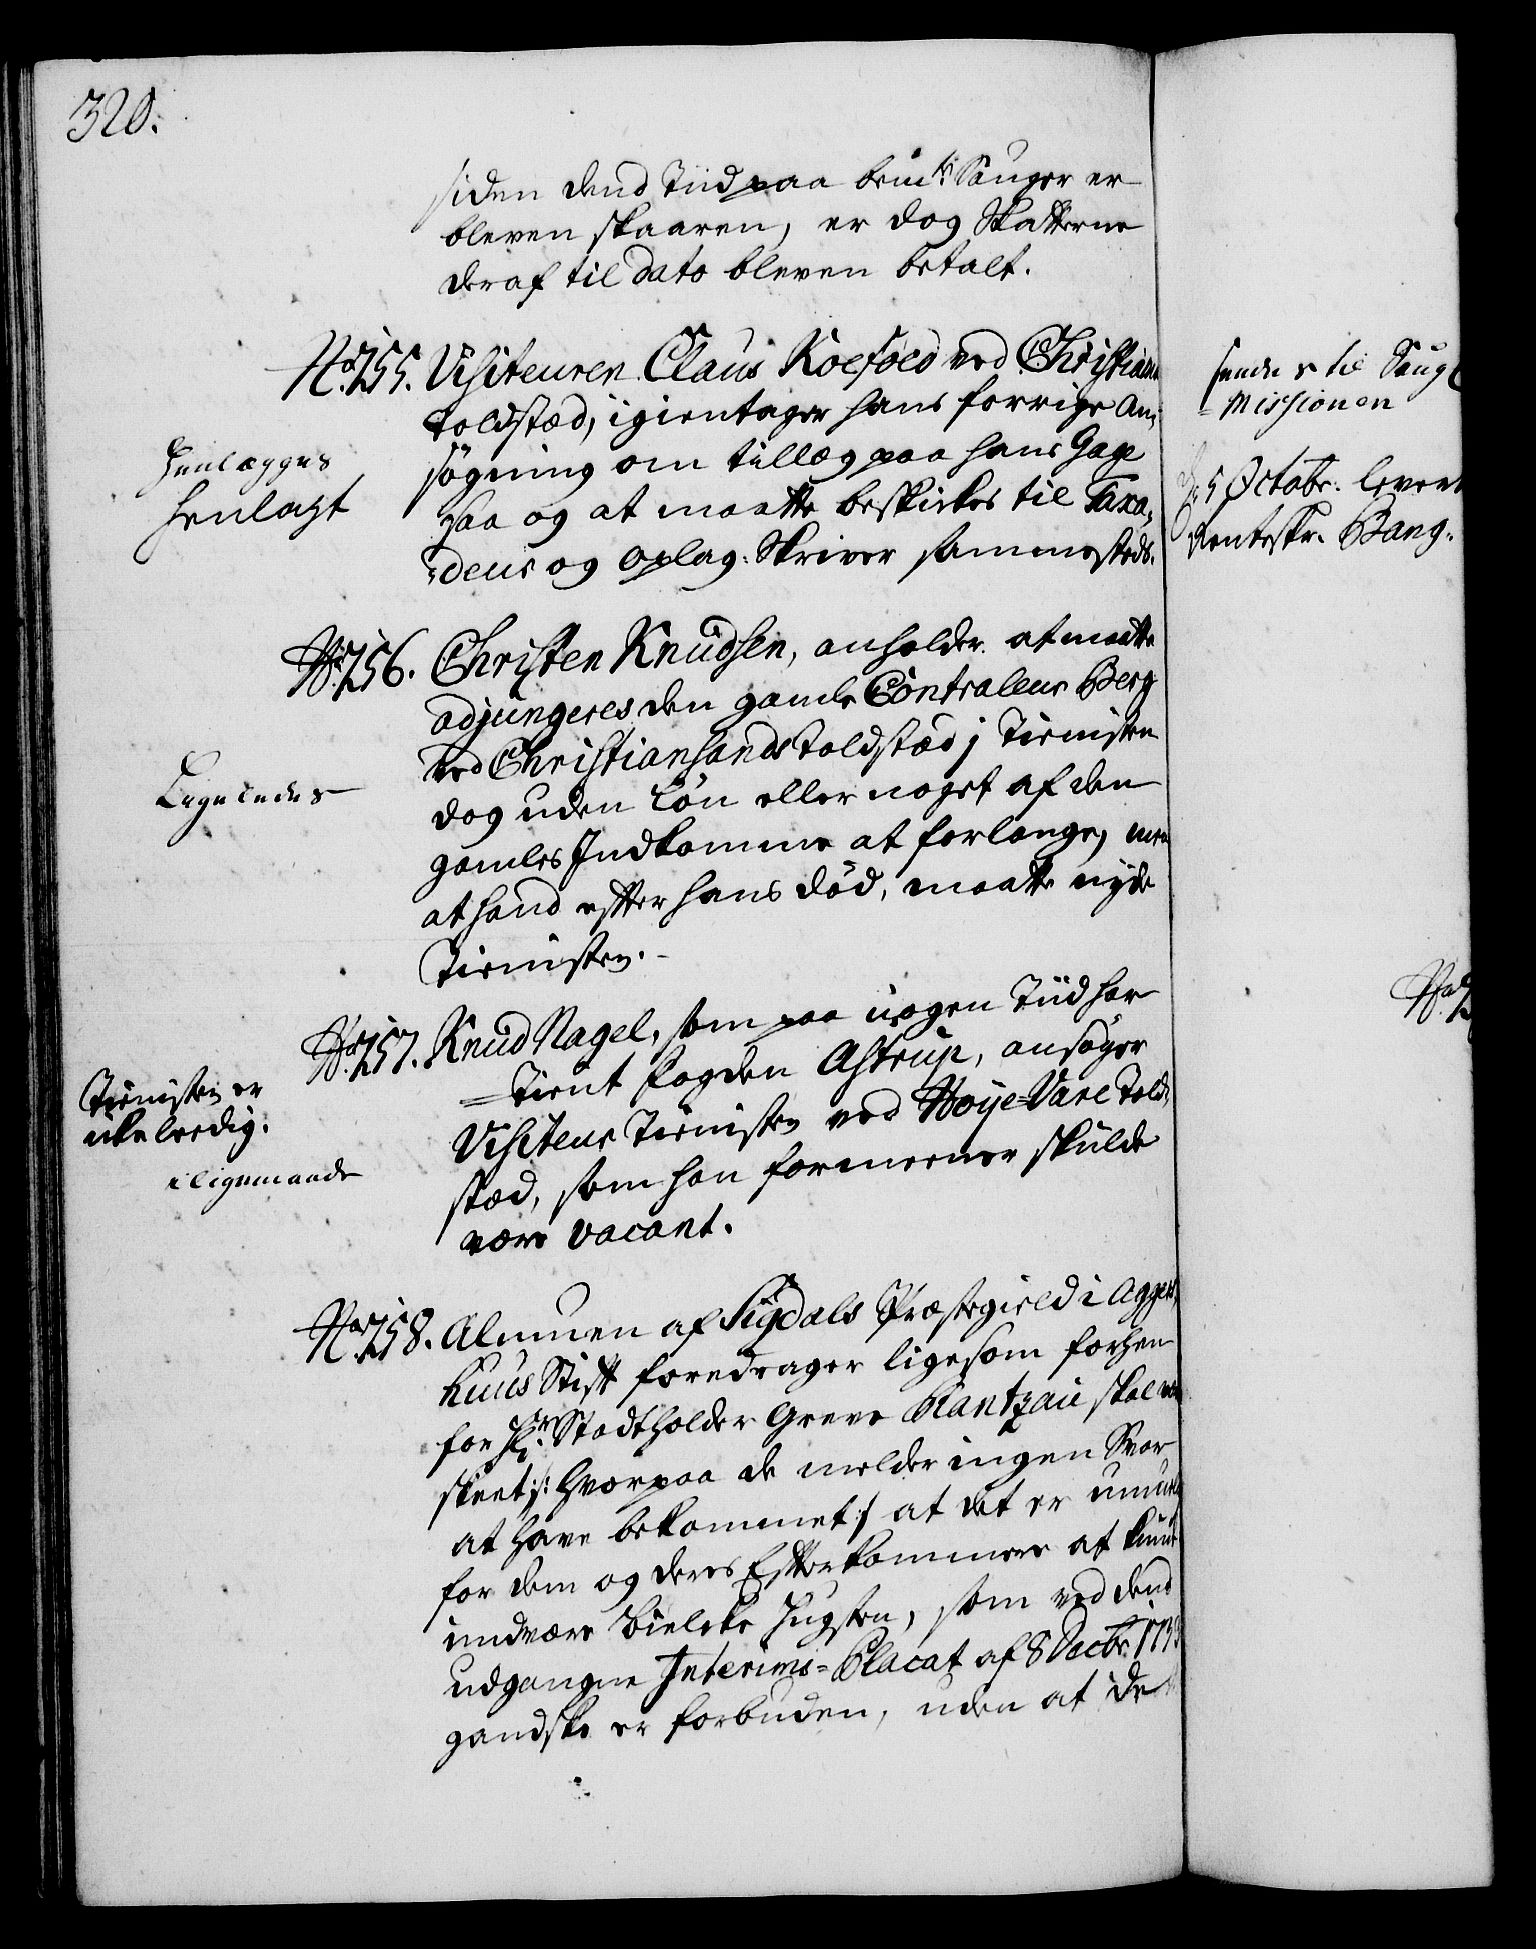 320.
siden dend Tiid paa bem:te Sauger er
bleven skaaren, er dog Skatterne
deraf til dato bleven betalt.
No. 255. Visiteuren Claus Koefoed ved Christians
Toldstæd, igientager hans forrige An¬
søgning om tillæg paa hans Gage
saa og at maatte beskikkes til Tara¬
deur og Oplag: Skriver sammesteds.
Henlægges
henlagt
No. 256. Christen Knudsen, anholder at maatte
adjungeres den gamle Contralleur Berg
ved Christiansands Toldstæd j Tienisten
dog uden Løn eller noget af den
gamles Indkomme at forlange, men
at hand efter hans død, maatte nyde
Tienisten.
Ligeledes
No. 257. Knud Nagel, som paa nogen Tiid har
tient fogden Astrup, ansøger
Visiteur Tienisten ved Høye-Vare Told¬
stæd, som han formeener skulde
være vacant.
Tienisten er
ikke leedig.
i ligemaade
No. 258. Almuen af Sigdals Præstegield i Agger¬
huus Stift foredrager ligesom forhen
for Hr. Stadtholder Greve Rantzau skal være
skeet /: hvorpaa de melder ingen Svar
at have bekommet :/ at det er umueligt
for dem og deres Efterkommere at kunde
undvære Bielke Hugsten, som ved dend
udgangne Interims-Placat af 8 Decbr. 173
gandske er forbuden, uden at de
sendes til Saug
missionen
d. 5 Octobr. levert
Renteskr. Bang.
No. 2